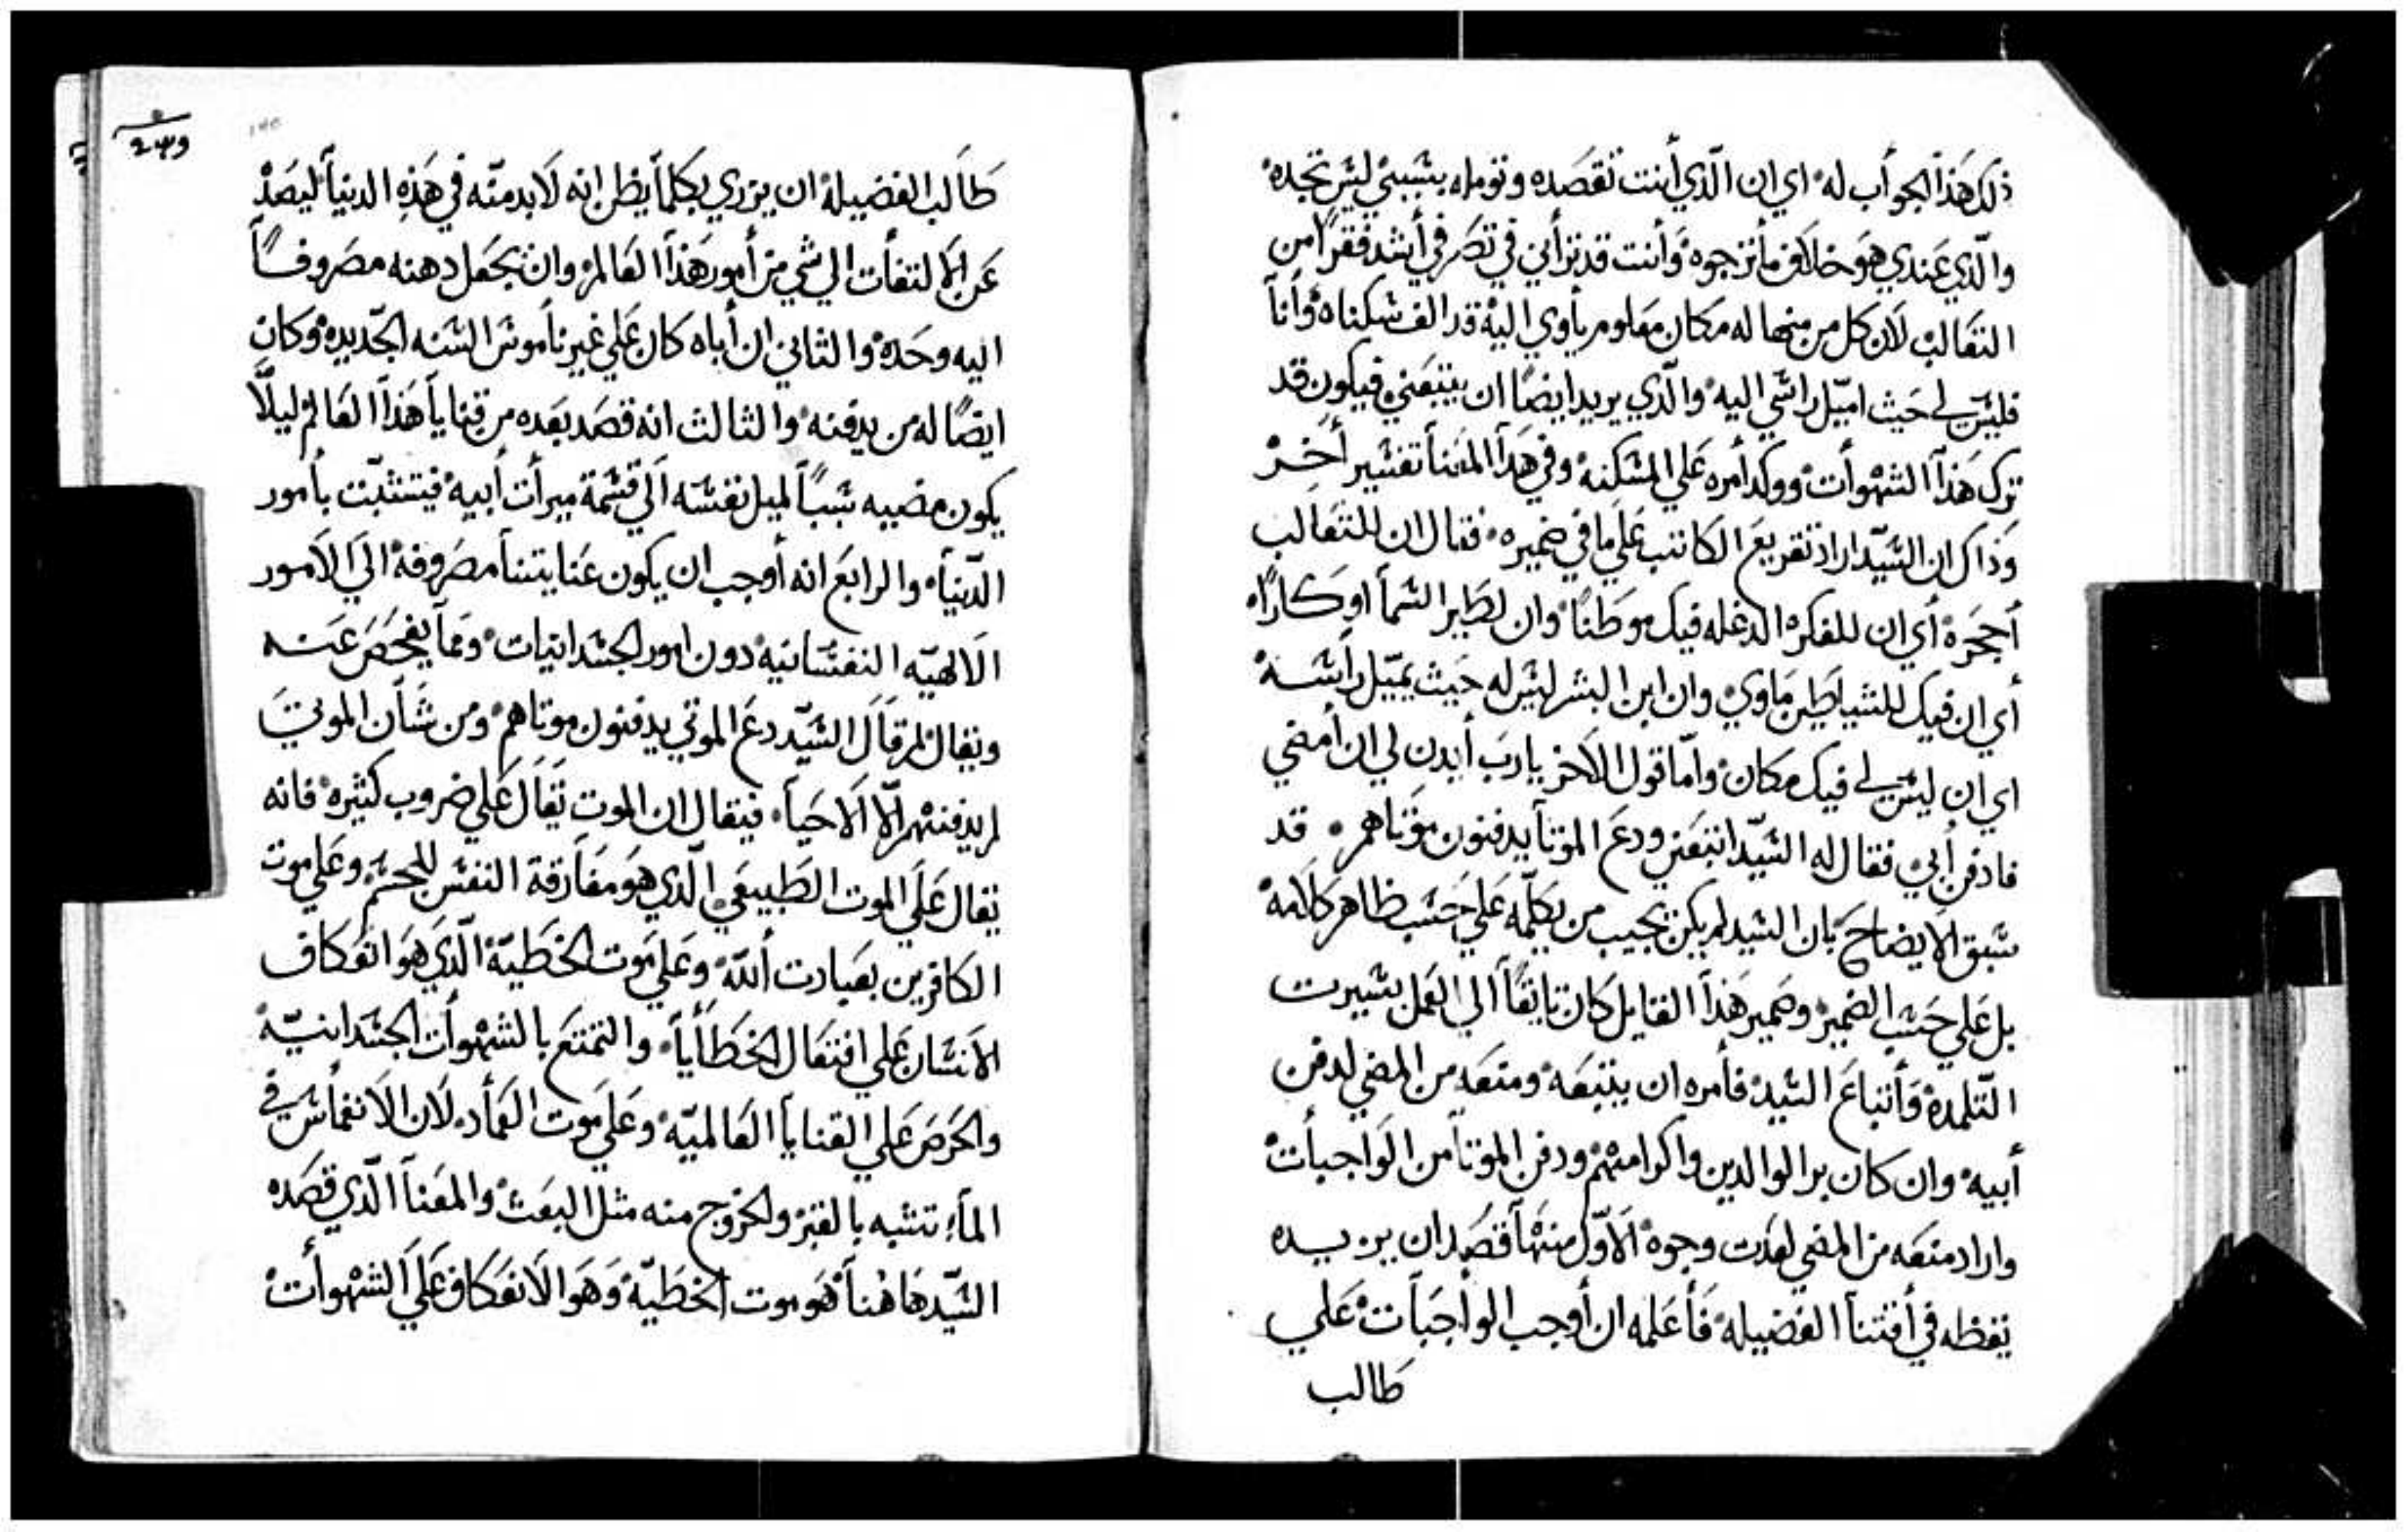 ذلك هذا الجواب له اي ان الّذي أنت تقصَده وتومله بسَببي ليسَ تجده
والّذي عَندي هوَ خلاف ما ترجوه وَأنت قد تراني في تصَرفي أشد فقرًا من
التعَالب لان كل من منها له مكان معَلوم يأوي اليه قد الف سَكناه وأنا
فليسَ لي حَيث اميّل راسَي اليه والّذي يريد ايضًا ان يتبعَني فيكون قد
ترك هَذا الشهوأت ووكد أمره عَلي المسَكنه وفي هَذا المعَنا تفسَير أخِر
وَذاك ان السَيّد اراد تقريعَ الكاتب عَلي ما في ضميره فقال ان للتعَالب
أججرة أي ان للفكره الدغله فيك موطَنًا وان لطَير السَما اوكارًا
أي ان فيك للشياطَين مَاوي وان ابن البشر ليسَ له حَيث يميّل رأسَه
اي ان ليسَ لي فيك مكان وامّا قول الاخر يارب أيدن لي ان أمضي
فادفن أبي فقال له السَيّد اتبعَني ودعَ الموتا يدفنون موَتاهم قد
سَبق الايضاحَ بان السَيد لم يكن يجيب من يكلّمه عَلي حَسَب ظاهر كلامه
بل عَلي حَسَب الضمير وضمير هَذا القايل كان تايقًا الي العَمل بسَيرت
التّلمدة وَأتباعَ السَيد فأمره ان يتبعَه ومنعَه من المضي لدفن
أبيه وان كان بر الوالدين واكرامهم ودفن الموتا من الوَاجبأت
واراد منعَه من المضي لعَدت وجوه الاوّل منها قصَد ان يزيده
تغطه في أقتنا الفضيله فَأعَلمه ان أوجب الوأجَبات عَلي
طالب
طَالب الفضيلة ان يزري بكلمأ يظن انه لَابد منّه في هَذِه الدنيا ليصَدْ
عَن الإلتفأت الي شي من أمور هَذا العَالم وان يجعَل دهنه مصَروفًا
اليه وحَدهْ والثاني ان أباه كان عَلي غير نأموسَ السَنه الجّديده وكان
ايضًا له من يدفنه والثالث انه قصَد بعَده من قنايا هَذا العَالم ليلّا
يكون مضيه سَببًا لميل نفسَه الي قسَمة ميرأت أبيه فيتشبّت بأمور
الدّنيا والرابعَ انه أوجب ان يكون عَنايتنا مصَروفة الي الَامور
الَالهيّه النفسَانيه دون امور الجسَدانيات ومَما يفحَصَ عَنه
ويقال لم قَال السَيّد دعَ الموتي يدفنون موتاهم ومن شَأن الموتي
لم يدفنهم الّا الَاحَيا فيقال ان الموت يقَال عَلي ضروب كثيره فانه
يقال عَلي الموت الطَبيعَي الّذي هوَ مفَارقة النفسَ للجسَم وعَلي موت
الكافرين بعَبادت أللّه وعَلي موت الخطَيّة الّذي هوَ انعَكاف
الانسَان عَلي افتعَال الخطَأيا والتمتعَ بالشهوأت الجسَدانيّة
والحَرصَ عَلي القنايا العَالميّه وعَلي موت العَمأد لَان الَانغمأسَ في
المأء تشبه بالقبر ولخروج منه مثل البعَث والمعَنا الّذي قصَده
السَيّد هَاهُنا هوَ موت الخطَيّة وَهوَ الانعَكاف عَلي الشهوأت